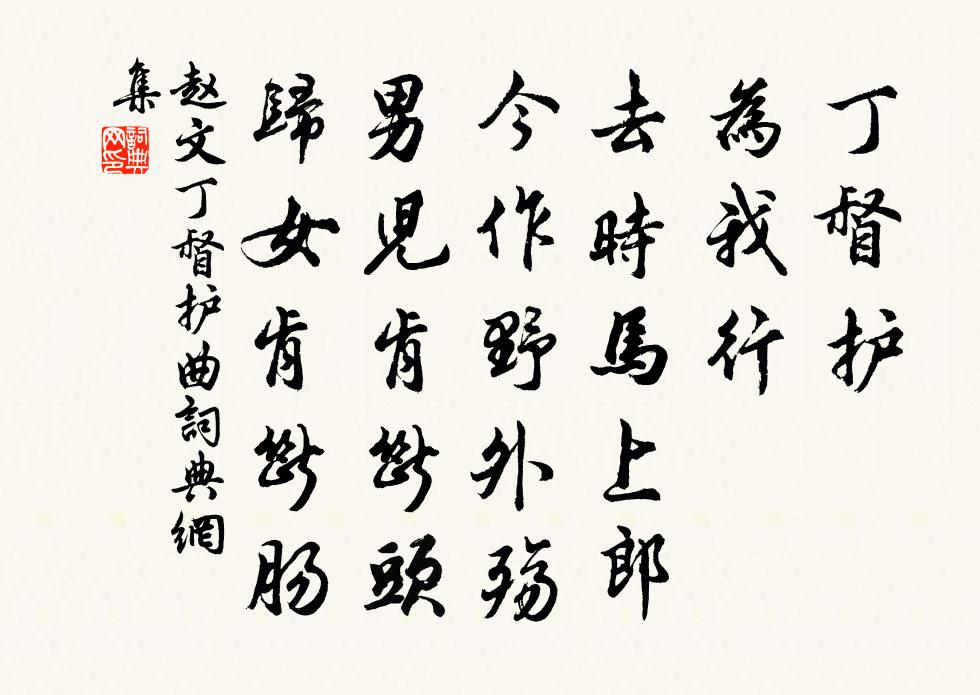 丁督护
為我行
去時馬上郎
今作野外殤
男児肯斷頭
歸女肯斷肠
赵文丁督护曲詞典網
集
詞典
网印